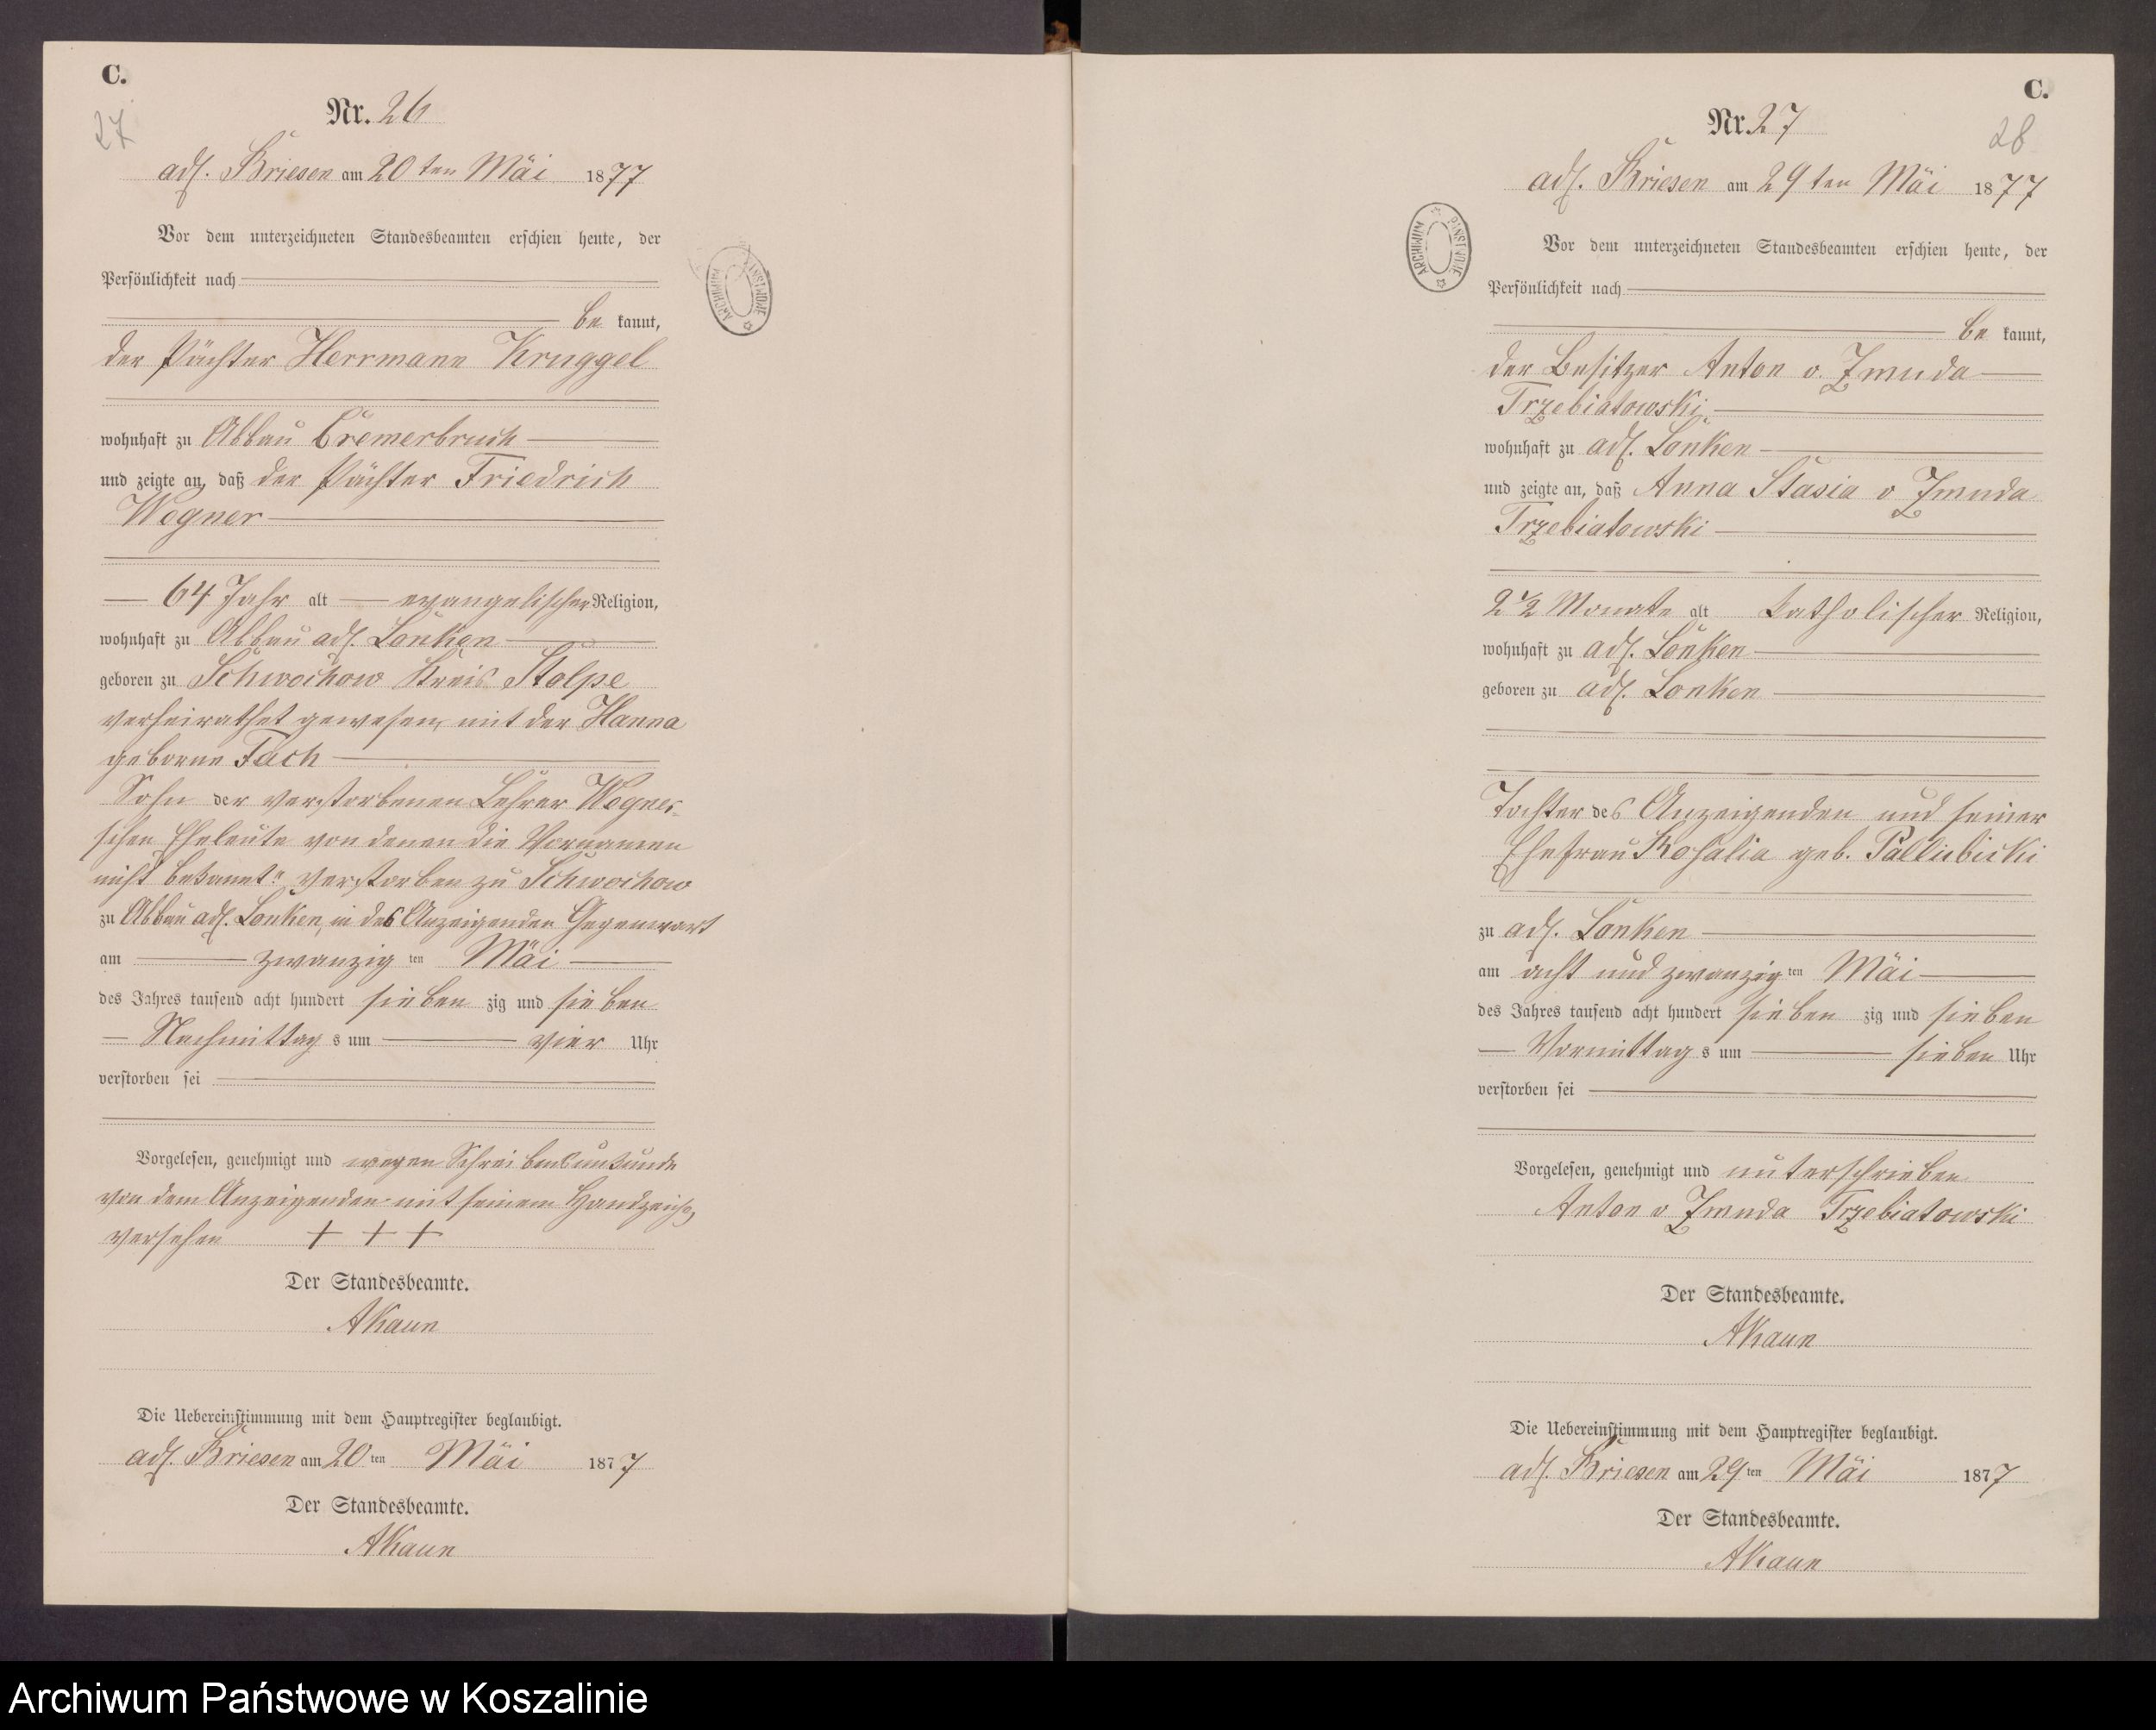 C.
27
Nr. 26
adl. Briesen am 20 ten Mäi 1877
Vor dem unterzeichneten Standesbeamten erschien heute, der
Persönlichkeit nach
be kannt,
der Pächter Herrmann Kruggel
wohnhaft zu Abbau Cremerbruch
und zeigte an, daß der Pächter Friedrich
Wegner
64 Jahr alt evangelischer Religion,
wohnhaft zu Abbau adl. Lonken
geboren zu Schwochow Kreis Stolpe
verheirathet gewesen, mit der Hanna
geborne Tach
Sohn der verstorbenen Lehrer Wegner-
schen Eheleute von denen die Vornamen
nicht bekannt. verstorben zu Schwochow
zu Abbau adl. Lonken, in des Anzeigenden Gegenwart
am zwanzig ten Mäi
des Jahres tausend acht hundert sieben zig und sieben
Nachmittag s um vier Uhr
verstorben sei
Vorgelesen, genehmigt und wegen Schreibensunkunde
von dem Anzeigenden mit seinem Handzeichen
versehen + + +
Der Standesbeamte.
AKaun
Die Uebereinstimmung mit dem Hauptregister beglaubigt.
adl. Briesen am 20 ten Mäi 1877
Der Standesbeamte.
AKaun
ARCHIWUM PAŃSTWOWE
C.
28
Nr. 27
adl. Briesen am 29 ten Mäi 1877
Vor dem unterzeichneten Standesbeamten erschien heute, der
Persönlichkeit nach
be kannt,
der Besitzer Anton v. Zmuda
Trzebiatowski
wohnhaft zu adl. Lonken
und zeigte an, daß Anna Stasia v Zmuda
Trzebiatowski
2 1/2 Monate alt katholischer Religion,
wohnhaft zu adl. Lonken
geboren zu adl. Lonken
Tochter des Anzeigenden und seiner
Ehefrau Rosalia geb. Pallubicki
zu adl. Lonken
am acht und zwanzig ten Mäi
des Jahres tausend acht hundert sieben zig und sieben
Vormittag s um sieben Uhr
verstorben sei
Vorgelesen, genehmigt und unterschrieben
Anton v Zmuda Trzebiatowski
Der Standesbeamte.
AKaun
Die Uebereinstimmung mit dem Hauptregister beglaubigt.
adl. Briesen am 29 ten Mäi 1877
Der Standesbeamte.
AKaun
ARCHIWUM PAŃSTWOWE
Archiwum Państwowe w Koszalinie